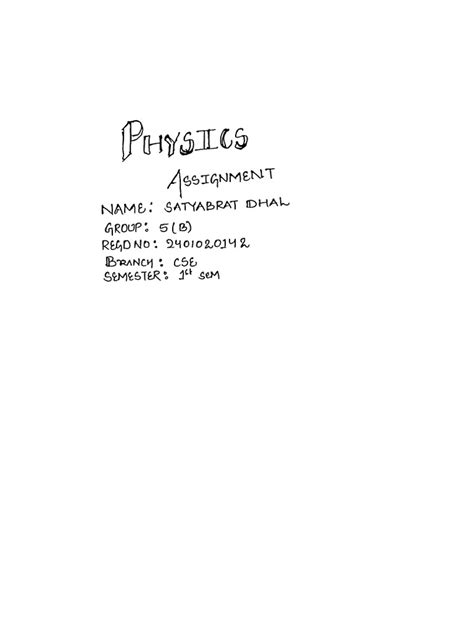 PHYSICS
ASSIGNMENT
NAME: SATYABRAT DHAL
GROUP: 5(B)
REGD NO: 2401020142
BRANCH: CSE
SEMESTER: 1st SEM